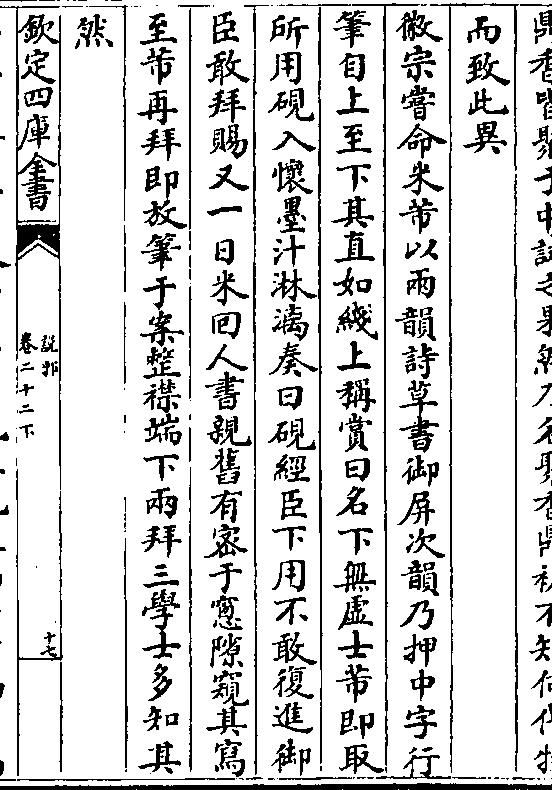 鼎香皆聚于中試之果然乃名聚香鼎初不知何代物
而致此異
徽宗嘗命米芾以兩韻詩草書御屏次韻乃押中字行
筆自上至下其直如綫上稱賞曰名下無虛士芾即取
所用硯入懷墨汁淋漓奏曰硯經臣下用不敢復進御
臣敢拜賜又一日米回人書親舊有密于窻隙窺其寫
至芾再拜即放筆于案整襟端下兩拜三學士多知其
然
欽定四庫全書
說郛
卷二十二下
十七